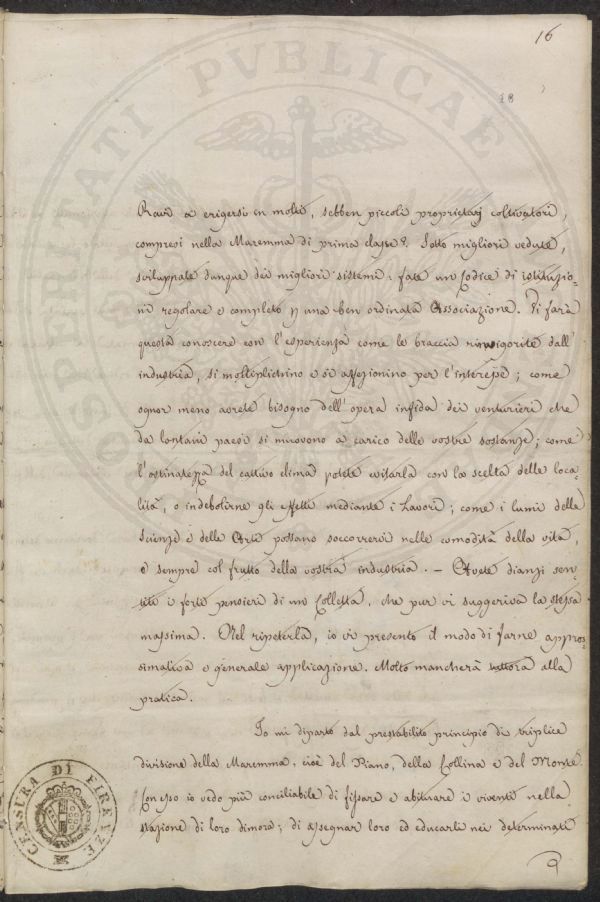 16
18
Ravi a erigersi in molti, sebben piccoli proprietarj coltivatori,
compresi nella Maremma di prima classe? Sotto migliori vedute,
sviluppate dunque dei migliori sistemi: fate un Codice di istituzio-
ni regolare e completo p una ben ordinata Associazione. Vi farà
questa conoscere con l'esperienza come le braccia rinvigorite dall'
industria, si moltiplichino e si affezionino per l'interesse; come
ognor meno avrete bisogno dell'opera infida dei venturieri che
da lontani paesi si muovono a carico delle vostre sostanze; come
l'ostinatezza del cattivo clima potete evitarla con la scelta delle loca-
lità, o indebolirne gli effetti mediante i lavori; come i lumi delle
Scienze e delle Arti possano soccorrervi nelle comodità della vita,
e sempre col frutto della vostra industria. — Avete dianzi sen-
titi i forti pensieri di un Colletta, che pur vi suggeriva la stessa
massima. Nel ripeterla, io vi presento il modo di farne appros-
simativa e generale applicazione. Molto mancherà tuttora alla
pratica.
Io mi diparto dal prestabilito principio di triplice
divisione della Maremma, cioè del Piano, della Collina e del Monte.
Con esso io vedo più conciliabile di fissare e abituare i viventi nella
stazione di loro dimora; di assegnar loro ed educarli nei determinati
OSPERITATI PVBLICAE
CENSURA DI FIRENZE